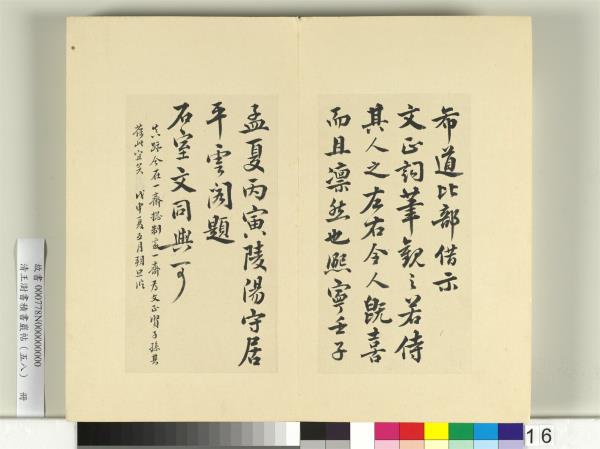 希道比部借示
文正詞筆觀之若侍
其人之左右令人既喜
而且凛然也熙寧壬子
孟夏丙寅陵陽守居
平雲阁題
石室文同與可
真跡今在一齋總制家一齋乃文正賢子孫其
葆此宜矣 戊申夏五月朔旦
故書000778N00000000
清王澍書積書巖帖（五八） 冊
16